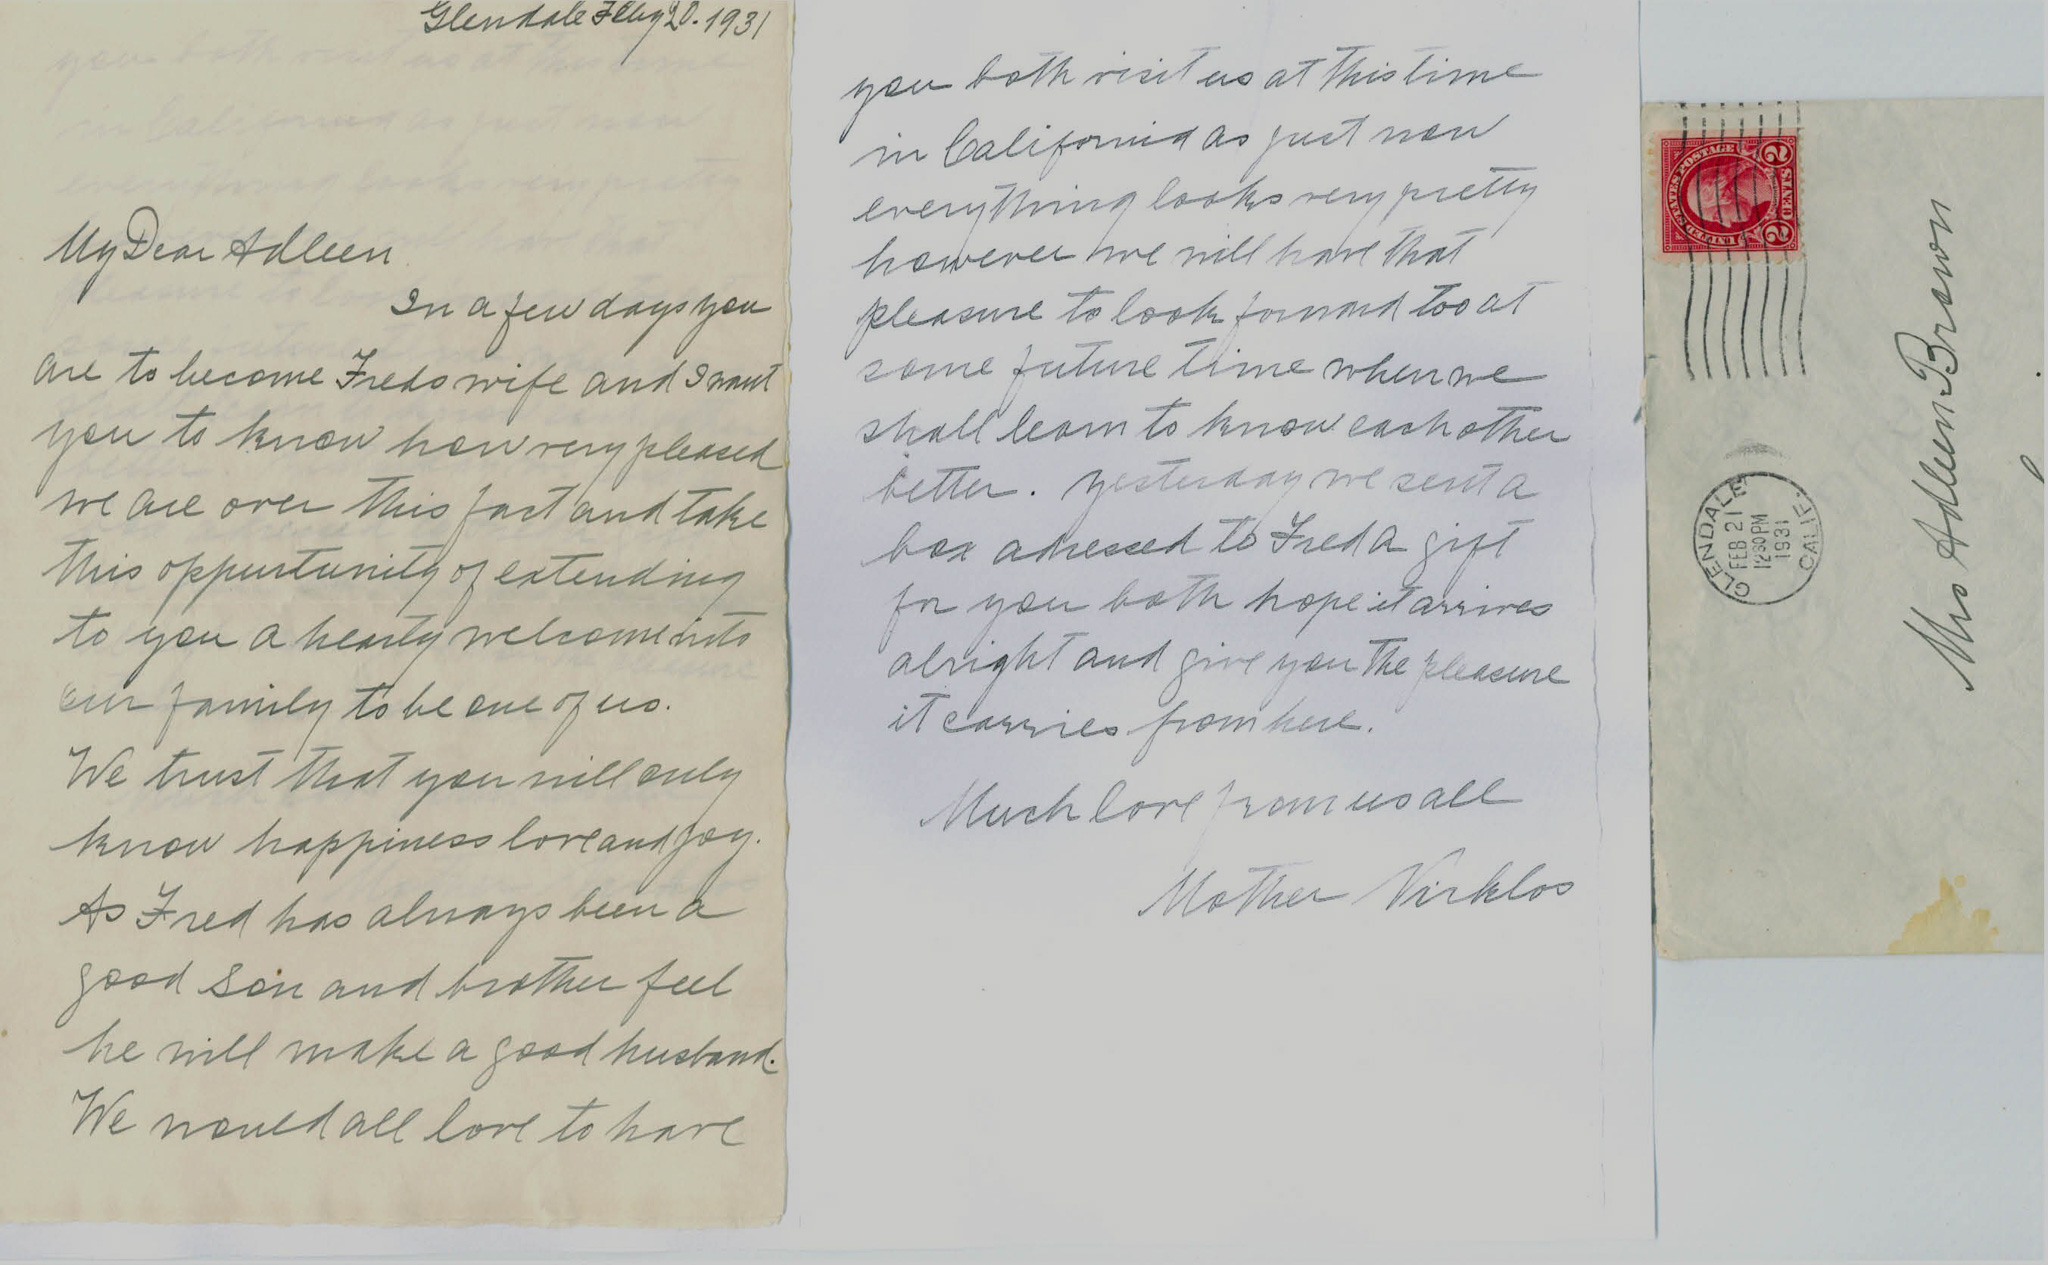 Glendale Feby 20. 1931
My Dear Adleen
In a few days you
are to become Freds wife and I want
you to know how very pleased
we are over this fact and take
this oppurtunity of extending
to you a hearty welcome into
our family to be one of us.
We trust that you will only
know happiness love and joy.
As Fred has always been a
good son and brother feel
he will make a good husband.
We would all love to have
you both visit us at this time
in California as just now
everything looks very pretty
however we will have that
pleasure to look forward too at
some future time when we
shall learn to know each other
better. Yesterday we sent a
box adressed to Fred a gift
for you both hope it arrives
alright and give you the pleasure
it carries from here.
Much love from us all
Mother Virklos
UNITED STATES POSTAGE
2 2
GLENDALE
FEB 21
12 30 PM
1931
CALIF.
Mrs Adleen Brown